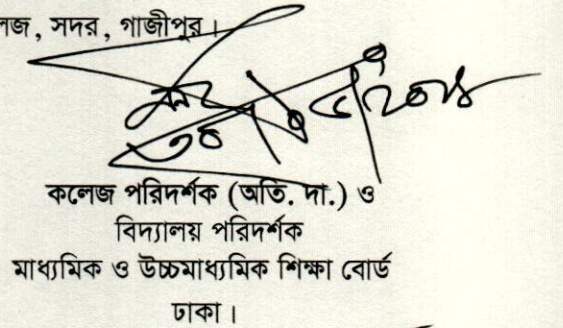 লেজ, সদর, গাজীপুর।
কলেজ পরিদর্শক (অতি. দা.) ও
বিদ্যালয় পরিদর্শক
মাধ্যমিক ও উচ্চমাধ্যমিক শিক্ষা বোর্ড
ঢাকা।